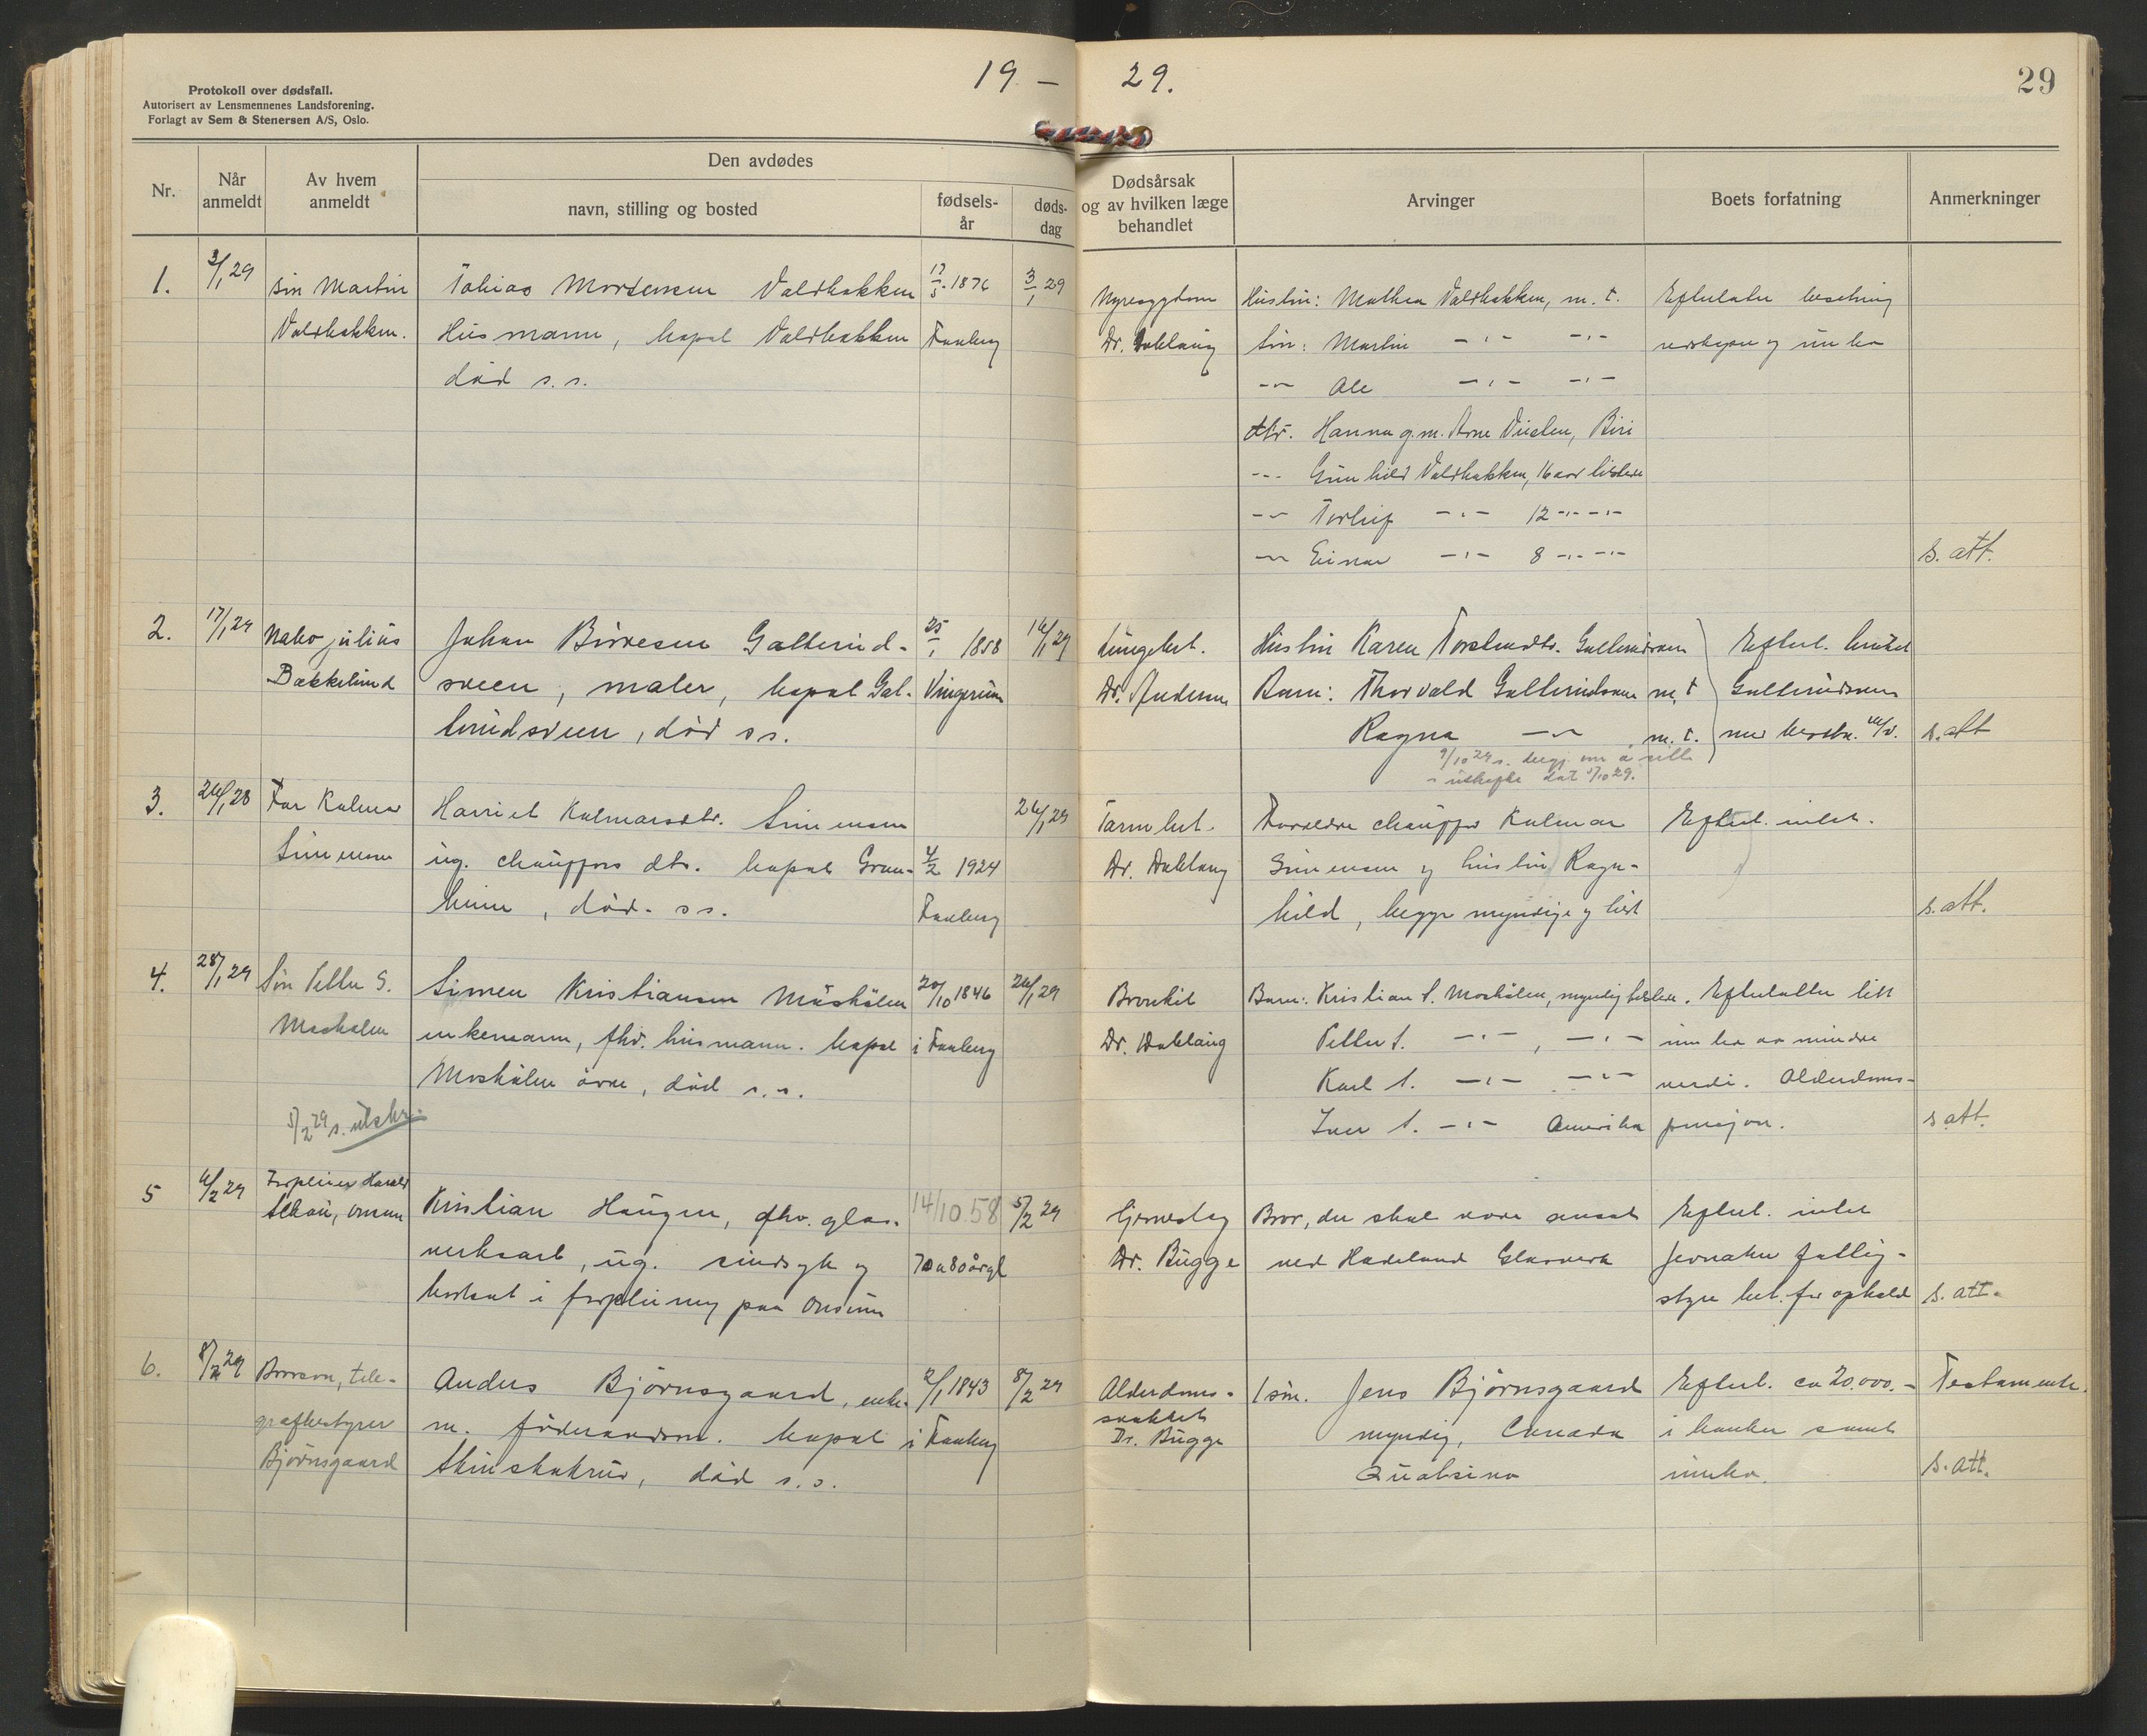 19 – 29.
29
Protokoll over dødsfall.
Autorisert av Lensmennenes Landsforening.
Forlagt av Sem & Stenersen A/S, Oslo.
Nr.
Når anmeldt
Av hvem anmeldt
Den avdødes
navn, stilling og bosted
fødsels-år
døds-dag
Dødsårsak og av hvilken læge behandlet
Arvinger
Boets forfatning
Anmerkninger
1.
3/1 29
sön Martin
Valdbakken.
Tobias Mortensen Valdbakken
Husmann, bopæl Valdbakken
död s. s.
17/5 1876
Faaberg
3/1 29
Nyresygdom
Dr. Dahlaug
Hustru: Mathea Valdbakken, m. t.
Sön: Martin -"- -"-
-"- Ole -"- -"-
dtr. Hanna g. m. Arne, Biri
-"- Gunhild Valdbakken, 16 aar
-"- Torleif -"- 12 -"- -"-
-"- Einar -"- 8 -"- -"-
Efterlater besetning
redskaper og innbo
s. att.
2.
17/1 29
Nabo Julius
Bakkelund
Johan Galterud-
sveen, maler, bopæl Gal-
terudsveen, död s s.
25/1 1858
Vingrum
16/1 29
Lungebet.
Dr. Andersen
Hustru Karen Galterudsveen
Barn: Thorvald Galterudsveen m. t
Ragna -"- m. t.
9/10 29 s.
s utskefte dat 5/10 29.
Efterl. bruket
Galterudsveen
s. att
3.
26/1 28
Far Kalmar
Simensen
Harriet Kalmarsdtr. Simensen
ug. chaufførs dtr. bopæl Gran-
heim, död. s s.
4/2 1924
Faaberg
26/1 29
Tarmbet.
Dr. Dahlaug
Forældre chauffør Kalmar
Simensen og hustru Ragn-
hild, begge myndige og
Efterl. intet.
s. att.
4.
28/1 29
Sön Petter S.
Moshölen
5/2 29 s. utskr.
Simen Kristiansen Moshölen
enkemann, fhv. husmann. bopæl i
Moshölen övre, död s. s.
20/10 1846
Faaberg
26/1 29
Bronkit
Dr. Dahlaug
Barn: Kristian S. Moshölen, myndig
Petter S. -"- , -"-
Karl S. -"- -"-
Iver S. -"- Amerika
Efterlater litt
innbo av mindre
verdi. Alderdoms-
pensjon.
s. att.
5
6/2 29
Forpleier Harald
Kristian Haugen, fhv. glas-
verksarb, ug. sindsyk og
bortsat i forpleining paa Onsum
14/10 58
70 a 80 år gl
5/2 29
Hjerneslag
Dr. Bugge
Bror, der skal være ansat
ved Hadeland Glasverk
Efterl. intet
Jevnaker fattig-
styre bet. for ophold
s. att.
6.
8/2 29
Brorsön, tele-
grafbestyrer
Björnsgaard
Anders Björnsgaard, enke-
m. föderaadsm. bopæl i
Skinstakrud, död s. s.
2/1 1843
Faaberg
8/2 29
Alderdoms-
svakhet
Dr. Bugge
1 sön. Jens Björnsgaard
myndig, Canada
Quatsino
Efterl. ca 20.000.-
i banken samt
innbo.
Testamente.
s. att.